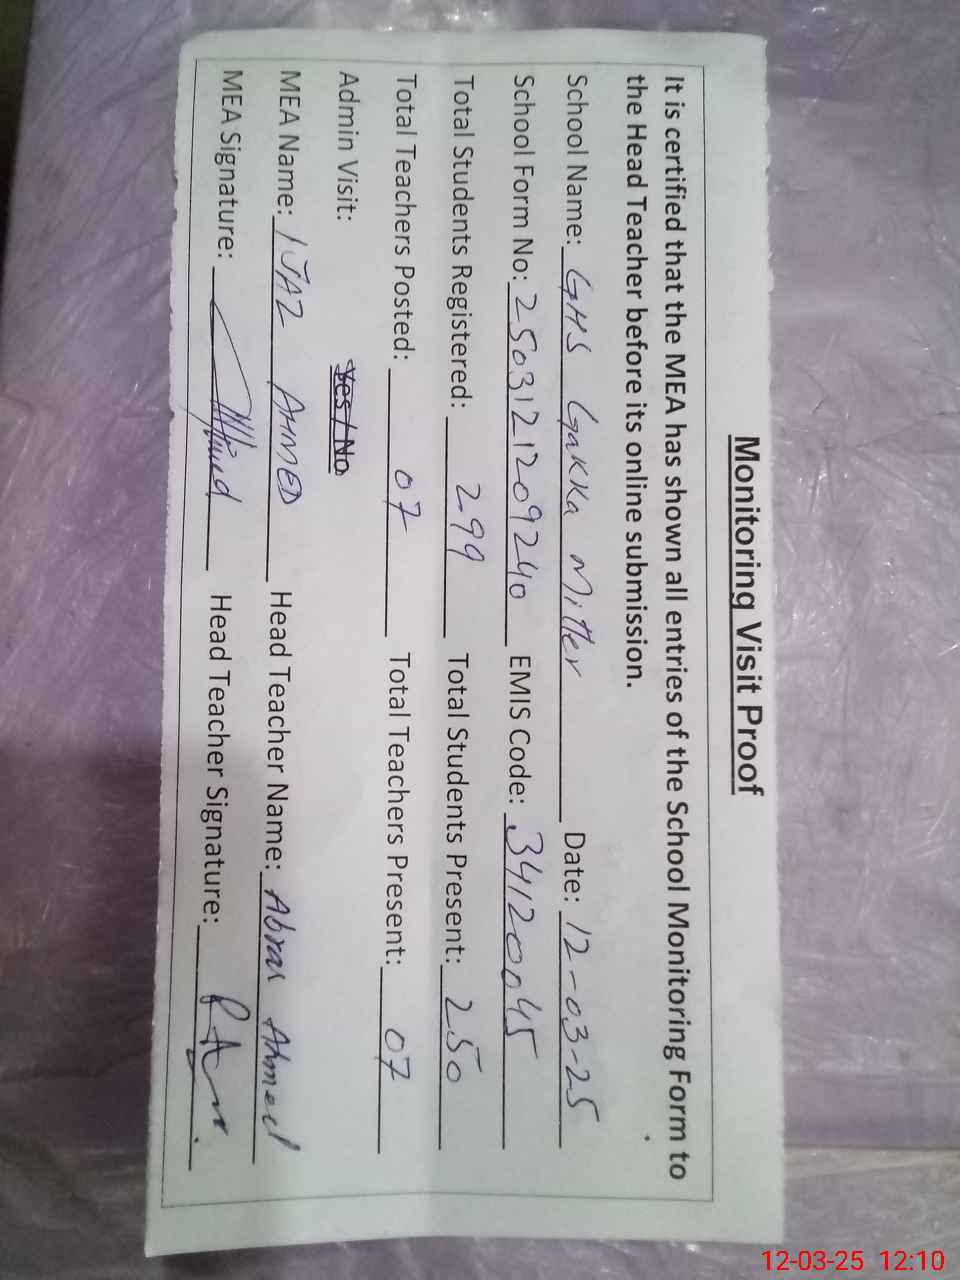 Monitoring Visit Proof
It is certified that the MEA has shown all entries of the School Monitoring Form to
the Head Teacher before its online submission.
School Name: GHS Gakka Mitter Date: 12-03-25
School Form No: 2503121209240 EMIS Code: 34120045
Total Students Registered: 299 Total Students Present: 250
Total Teachers Posted: 07 Total Teachers Present: 07
Admin Visit: Yes / No
MEA Name: IJAZ AHMED Head Teacher Name: Abrar Ahmed
MEA Signature: Head Teacher Signature:
12-03-25 12:10